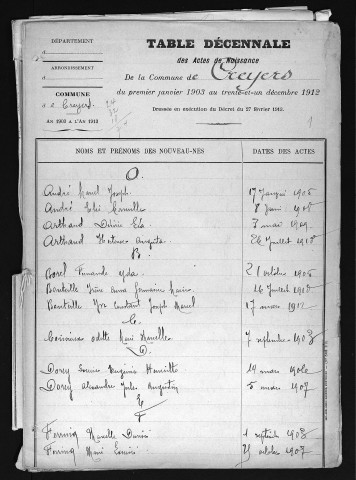 DÉPARTEMENT
TABLE DÉCENNALE
des Actes de Naissance
ARRONDISSEMENT
De la Commune de Creyers
du premier janvier 1903 au trente-et-un décembre 1912
COMMUNE
de Creyers
AN 1903 A L'AN 1912
Dressée en exécution du Décret du 27 février 1912.
1
NOMS ET PRÉNOMS DES NOUVEAU-NÉS
DATES DES ACTES
André Marcel Joseph
17 Janvier 1906
André Camille
7 Juin
Arthaud Désirée
3 mai
Arthaud Hortense Augusta
26 Juillet
B.
Borel Fernande
21 octobre 1906
Bontoille Irène Anna Germaine Marie
16 Juillet
Bontoille Constant Joseph Marcel
17 mars 1912
C.
Odette Marie Marcelle
7 septembre 1908
D.
Dorey Louise Eugénie Henriette
19 mars
Dorey Alexandre Jules Augustin
5 mars 1907
E
F
Ferning Marcelle
septembre 1908
Ferning Marie
octobre 1907